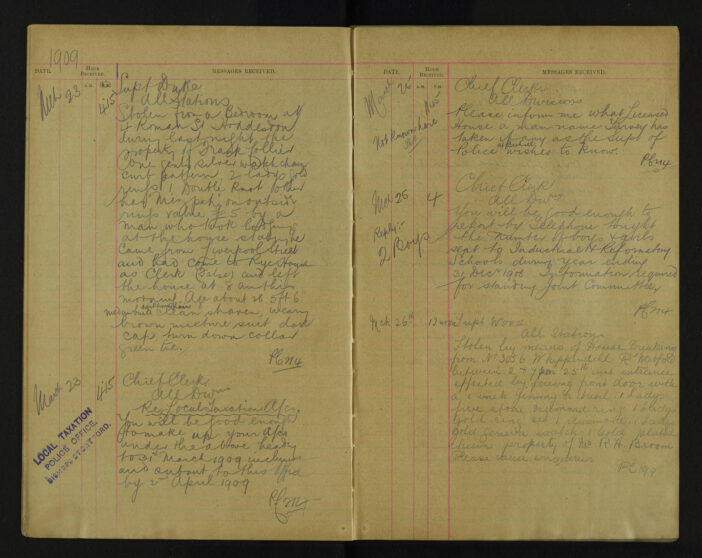 1909
DATE. HOUR RECEIVED. MESSAGES RECEIVED.
A.M. P.M.
Mch 23 4 15 Supt Duke
All Stations
Stolen from a Bedroom at
4 Roman St Hoddesdon
during last night the
property of Frank Collier
One gents silver watch chain
curb pattern 2 ladys gold
rings 1 Double Knot other
has Mizpah on outside
rings value £5 by a
man who took lodging
at the house stating he
came from Liverpool Street
and had come to Rye House
as Clerk (false) and left
the house at 8 am this
morning Age about 26 5ft 6
clean shaven, wearing
brown mixture suit dark
cap, turn down collar
green tie.
PC 114
March 23 4 15 Chief Clerk
All Dwns
Re Local Taxation A/cs.
You will be good enough
to make up your A/cs
under the above heading
to 31st March 1909 inclusive
and submit to this Office
by 2nd April 1909
PC 114
LOCAL TAXATION
POLICE OFFICE,
BISHOPS STORTFORD.
DATE. HOUR RECEIVED. MESSAGES RECEIVED.
A.M. P.M.
March Chief Clerk.
All Divisions
Not Known here
Please inform me what Licensed
House a man name has
taken if any as the Supt of
Police wishes to know.
PC 114
Mch 25 4 Chief Clerk
All Dwns
You will be good enough to
report by telephone tonight
the number of boys & girls
sent to Industrial & Reformatory
Schools during year ending
31 Dec 1908. Information required
for Standing Joint Committee
Reply:-
2 Boys
PC 114
Mch 26th Supt Wood
All Stations
Stolen by means of House Breaking
from No
between 2 & 7 pm 25th inst entrance
effected by forcing front door with
a 1 inch jemmy or chisel 1 ladys
five stone diamond ring 1 ladys
gold ring
gold
property of Mr R.A. Broom
Please cause enquiries
PC 149